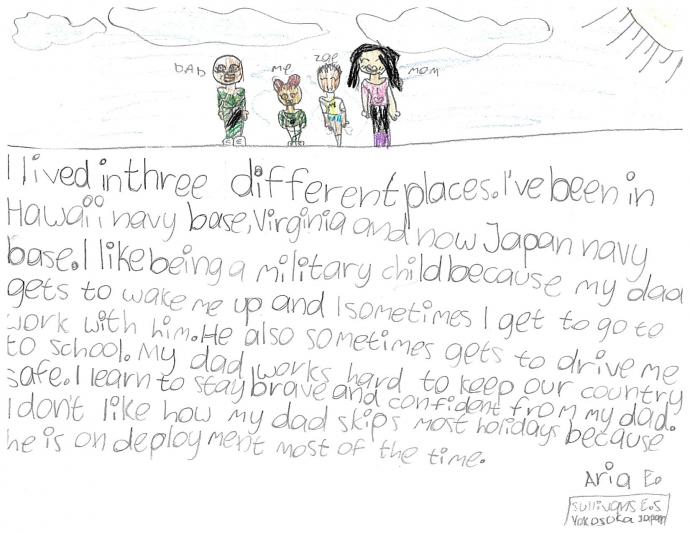 DAD
me
zoe
mom
I lived in three different places. I've been in
Hawaii navy base, Virginia and now Japan navy
base. I like being a military child because my dad
gets to wake me up and I sometimes I get to go to
work with him. He also sometimes gets to drive me
to school. My dad works hard to keep our country
safe. I learn to stay brave and confident from my dad.
I don't like how my dad skips most holidays because
he is on deployment most of the time.
Aria E.
Sullivans E.S
Yokosuka Japan